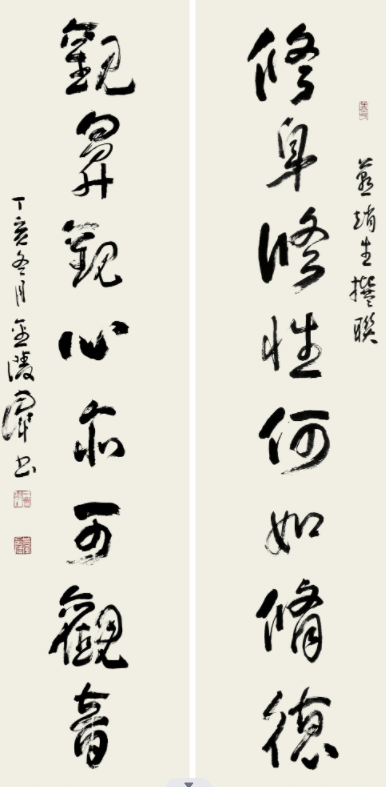 燕趙生撰聯
修身修性何如脩德
觀鼻觀心亦可觀音
丁亥冬月金陵書